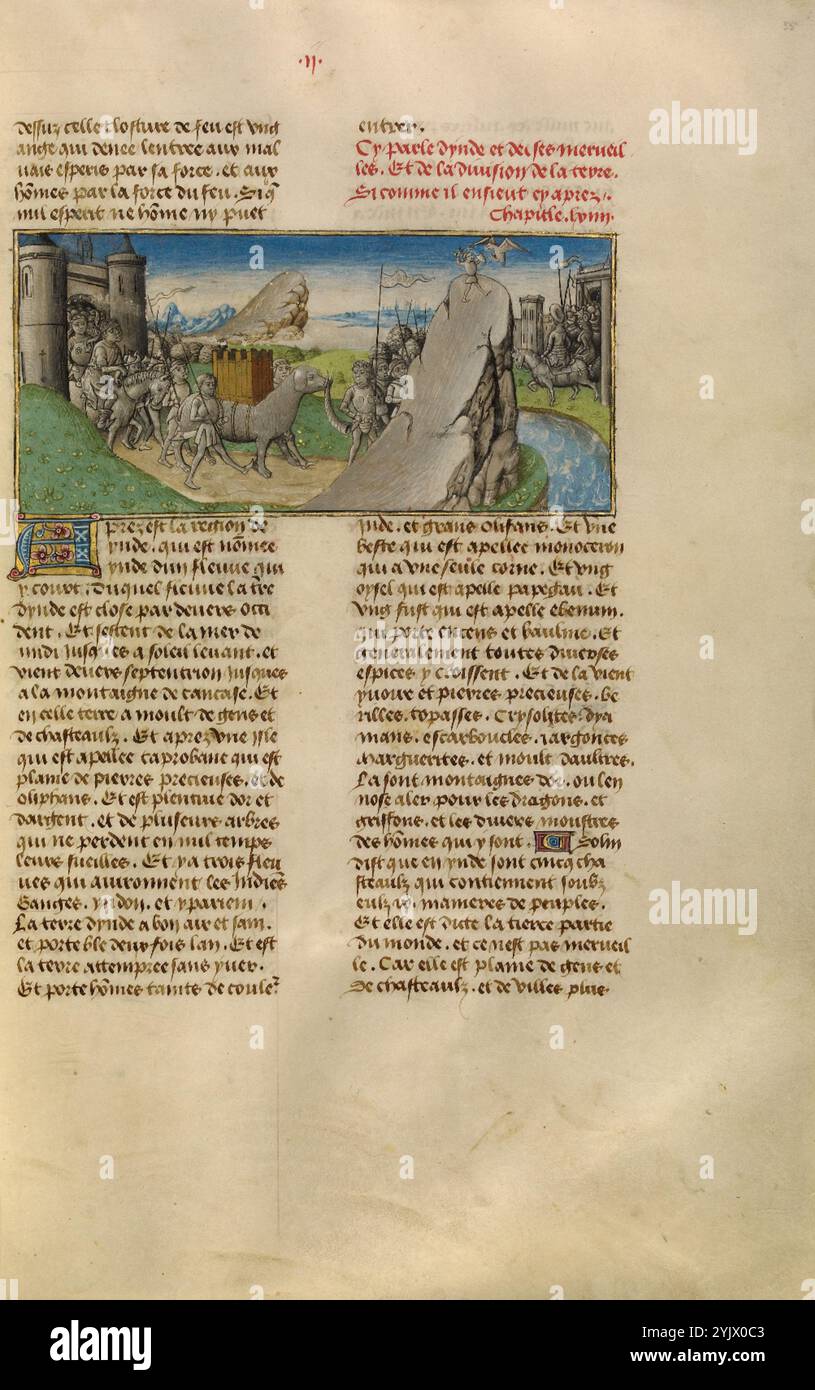 ·II·
dessuz celle closture de feu est ung
ange qui denee lentree aux mal
vais esperis par sa force. et aux
hômes par la force du feu. Si q̃
nul esperit ne hôme ny puet
entrer.
Cy parle dynde et de ses merueil
les. Et de la diuision de la terre.
Si comme il ensieut cy aprez.
Chapitle. lviiii.
Aprez est la region de
ynde. qui est nômee
ynde dun fleuue qui
y court. Duquel fleuue la t're
dynde est close par deuers occi
dent. Et sestent de la mer de
midi jusques a soleil leuant. et
vient deuers septentrion jusques
a la montaigne de caucase. Et
en celle terre a moult de gens et
de chasteaulz. Et aprez une ysle
qui est apellee taprobane qui est
plaine de pierres precieuses. et de
oliphans. Et est plentiue dor et
dargent. et de pluseurs arbres
qui ne perdent en nul temps
leurs fueilles. Et y a trois fleu
ues qui auironnent les Indiẽs
Ganges. yndon. et
La terre dynde a bon air et sain.
et porte ble deux fois lan. Et est
la terre attempree sans yuer.
Et porte hômes tains de coule^r
ynde. et grans olifans. Et une
beste qui est apellee monoceron
qui a une seule corne. Et ung
oysel qui est apelle papegau. Et
ung fust qui est apelle ebenum.
qui porte encens et baulme. Et
generalement toutes diuerses
espices y croissent. Et de la vient
yuoire et pierres precieuses. be
rilles. topasses. Crysolites. dya
mans. escarboucles. iargonces
Marguerites. et moult daultres.
La sont montaignes dor. ou len
nose aler pour les dragons. et
griffons. et les diuers monstres
des hômes qui y sont. Solin
dist que en ynde sont cincq cha
steaulz qui contiennent soubz
eulz manieres de peuples.
Et elle est dicte la tierce partie
du monde. et ce nest pas merueil
le. Car elle est plaine de gens et
de chasteaulz. et de villes plus
alamy
a
alamy
Image ID: 2YJX0C3
www.alamy.com